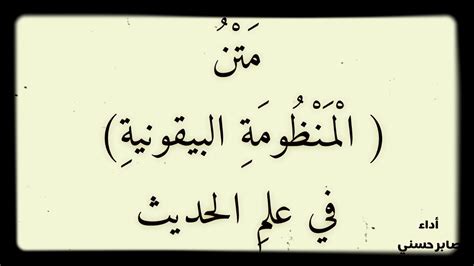 مَتْنُ
( الْمَنْظُومَةِ البيقونيةِ )
في علمِ الحديث
أداء
صابر حسني